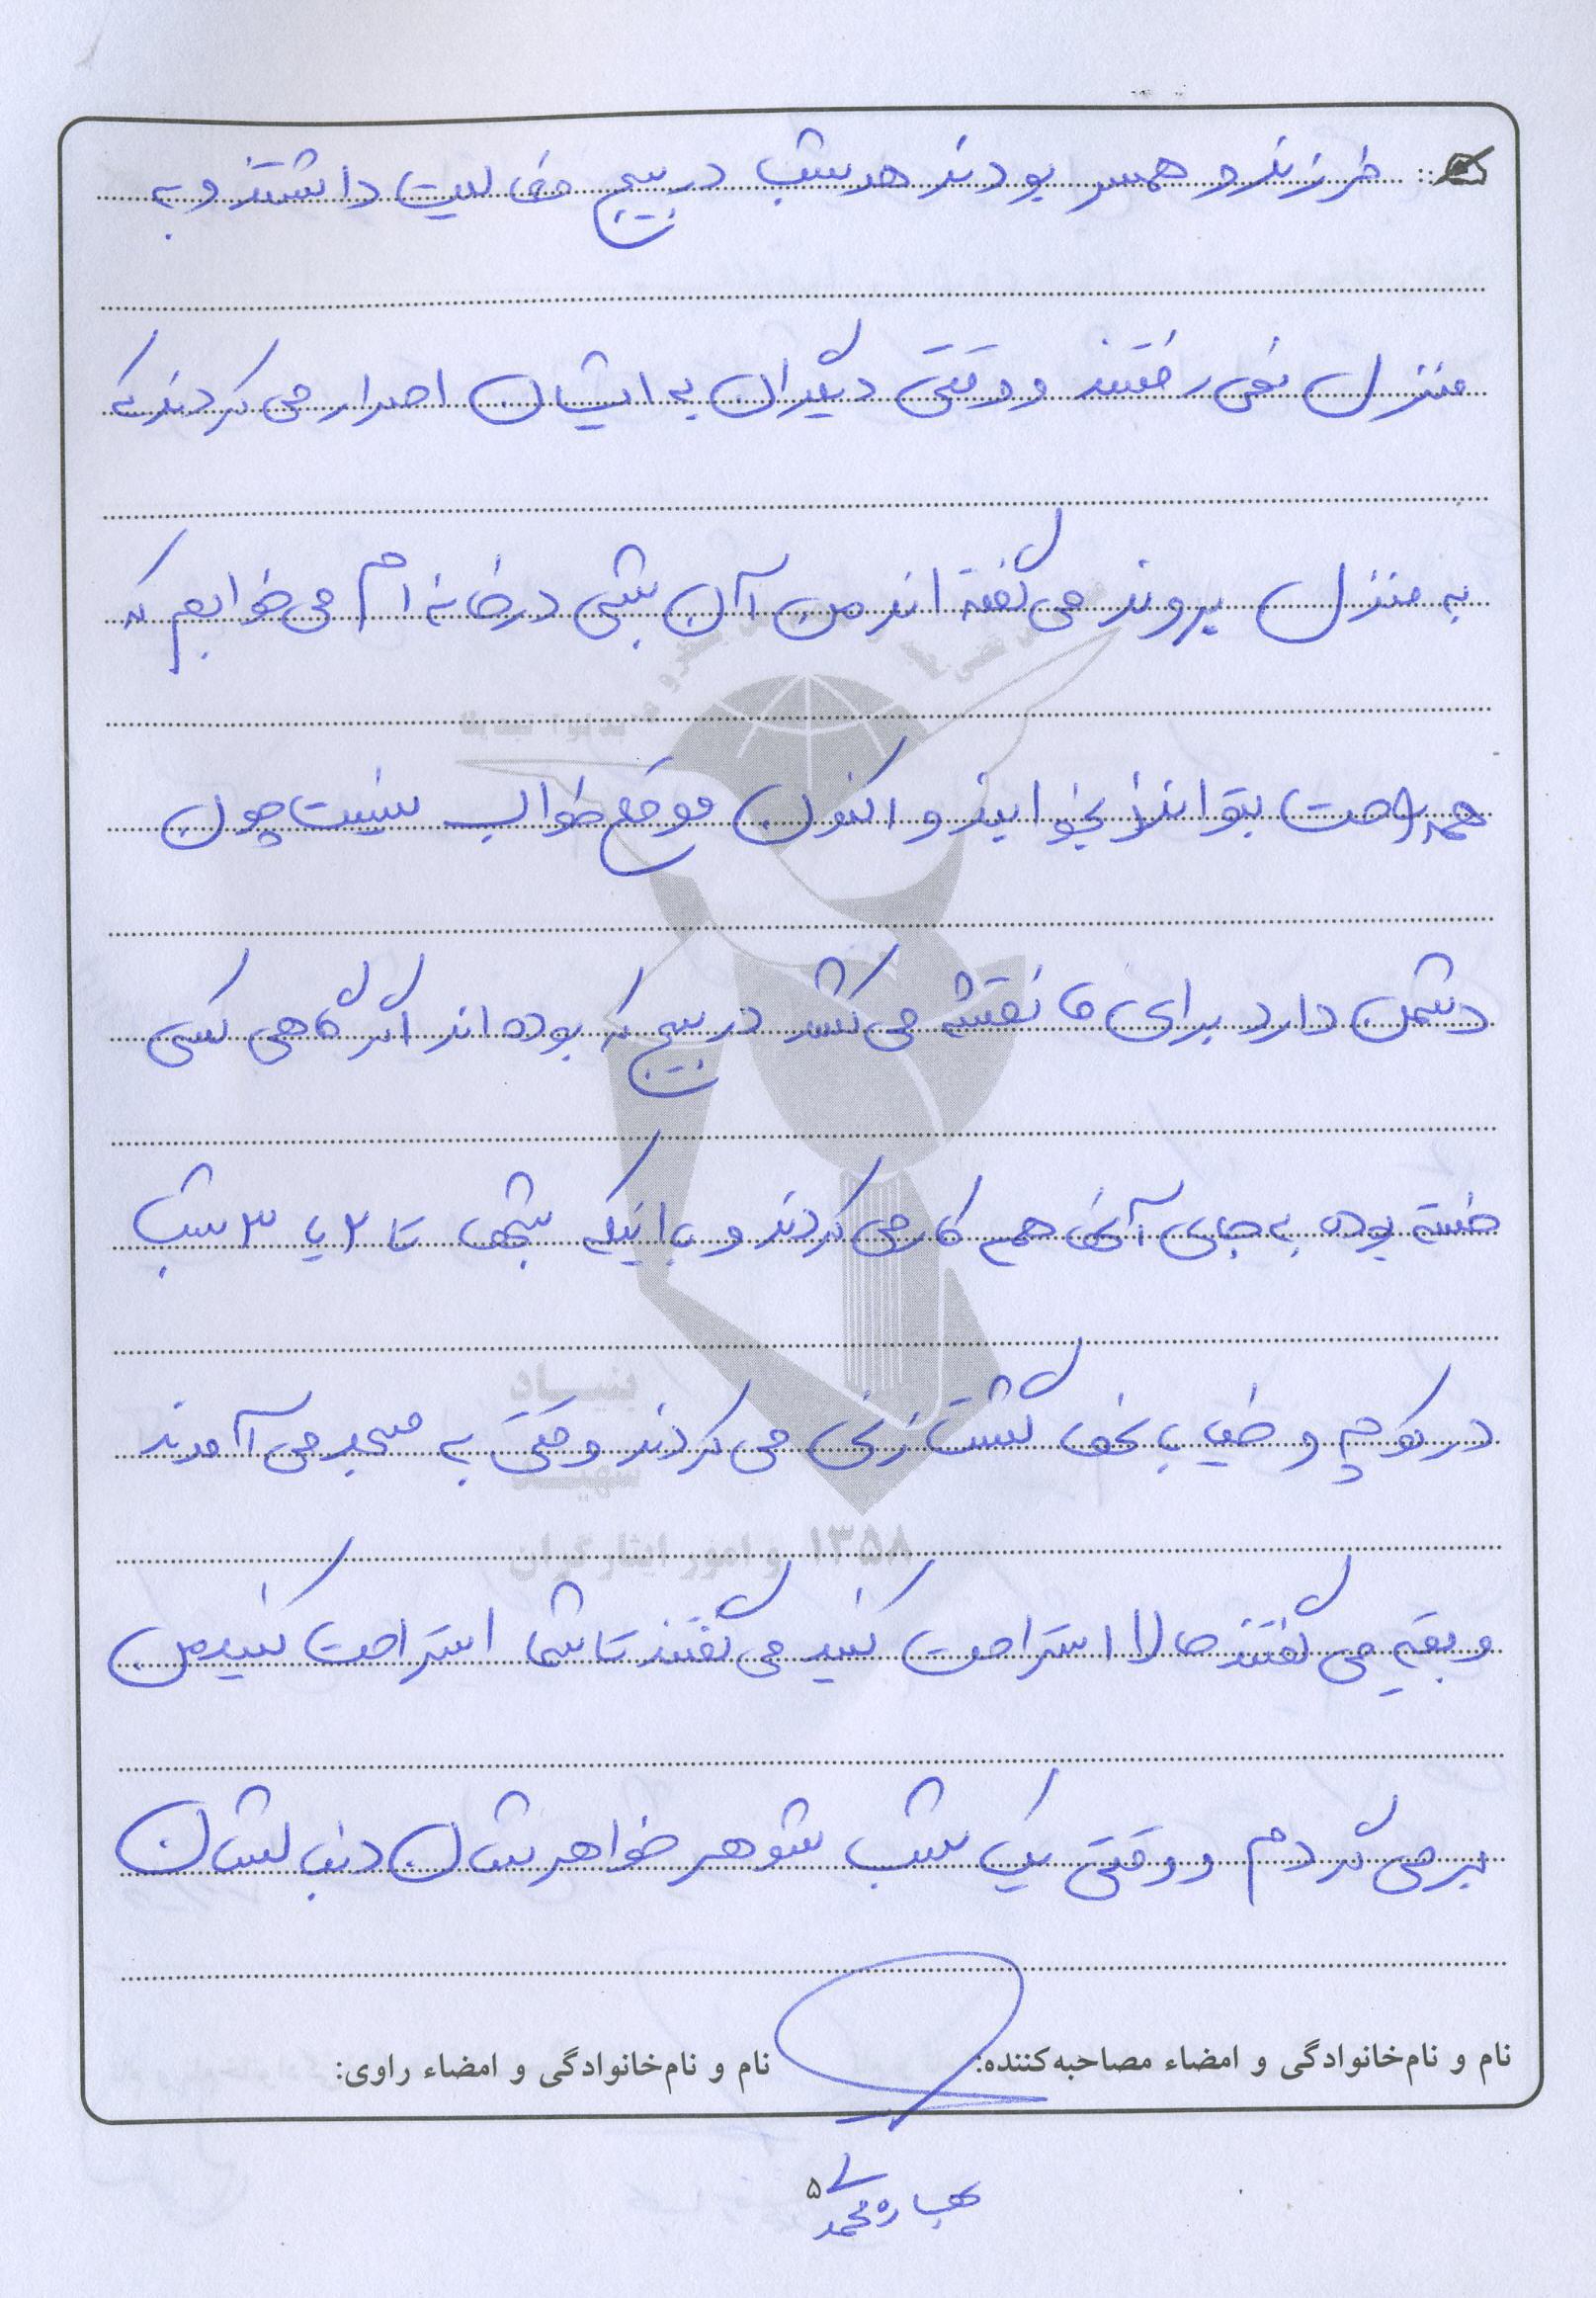 فرزند و همسر بودند هر شب در بسیج فعالیت داشتند و به
منزل نمی رفتند و وقتی دیگران به ایشان اصرار می کردند که
به منزل بروند می گفته اند من آن شبی در خانه ام می خوابم که
همه راحت بتوانند بخوابند و اکنون موقع خواب نیست چون
دشمن دارد برای ما نقشه می کشد در بسیج که بوده اند اگر گاهی کسی
خسته بوده به جای آنها هم کار می کردند و با اینکه شبها تا ۲ یا ۳ شب
در کوچه و خیابانها گشت زنی می کردند وقتی به مسجد می آمدند
و بقیه می گفتند حالا استراحت کنید می گفتند تا شما استراحت کنید من
بر می گردم و وقتی یک شب شوهر خواهرشان دنبالشان
نام و نام‌خانوادگی و امضاء مصاحبه‌کننده:
نام و نام‌خانوادگی و امضاء راوی:
۵
بنیـــاد
شهیـــد
و امور ایثارگران
۱۳۵۸